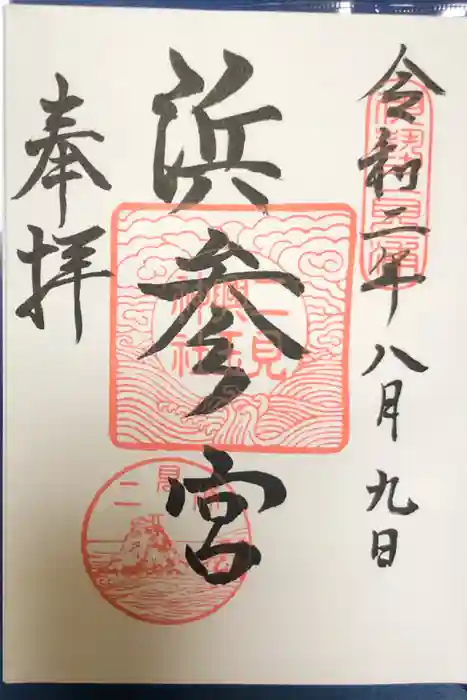 令和二年八月九日
浜参宮
奉拝
二見
興玉
神社